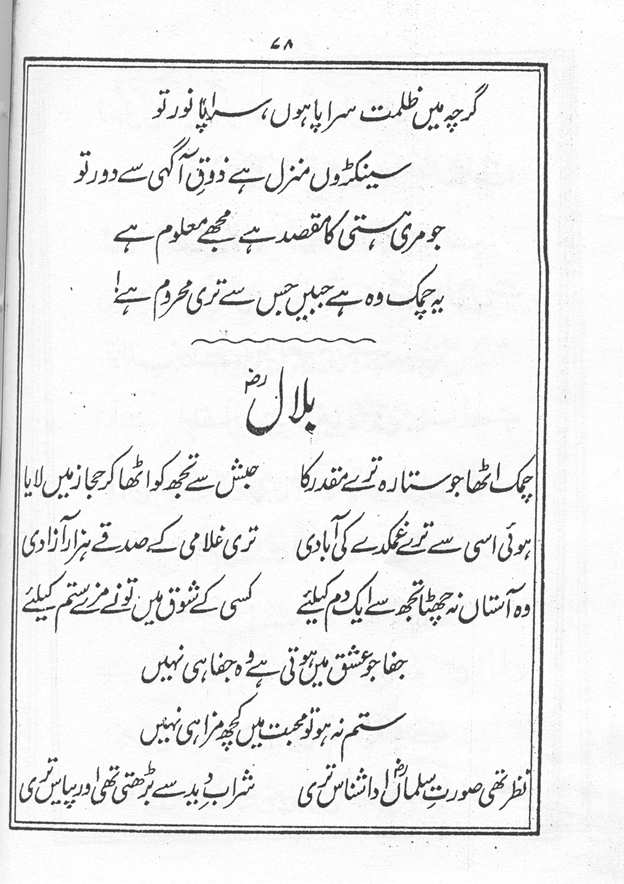 ۷۸
گرچہ میں ظلمت سراپا ہوں، سراپا نور تو
سینکڑوں منزل ہے ذوقِ آگہی سے دور تو
جو مری ہستی کا مقصد ہے مجھے معلوم ہے
یہ چمک وہ ہے جبیں جس سے تری محروم ہے!
بلالؓ
چمک اٹھا جو ستارہ ترے مقدر کا حبش سے تجھ کو اٹھا کر حجاز میں لایا
ہوئی اسی سے ترے غمکدے کی آبادی تری غلامی کے صدقے ہزار آزادی
وہ آستاں نہ چھٹا تجھ سے ایک دم کیلئے کسی کے شوق میں تو نے مزے ستم کیلئے
جفا جو عشق میں ہوتی ہے وہ جفا ہی نہیں
ستم نہ ہو تو محبت میں کچھ مزا ہی نہیں
نظر تھی صورتِ سلماںؓ ادا شناس تری شرابِ دید سے بڑھتی تھی اور پیاس تری